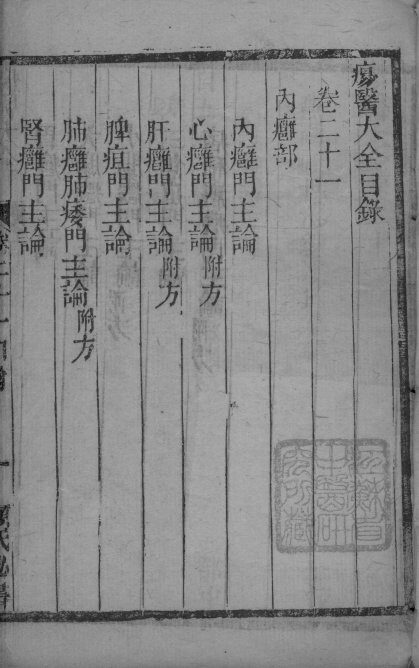 瘍醫大全目錄
卷二十一
內癰部
內癰門主論
心癰門主論附方
肝癰門主論附方
脾疽門主論
肺癰肺痿門主論附方
腎癰門主論